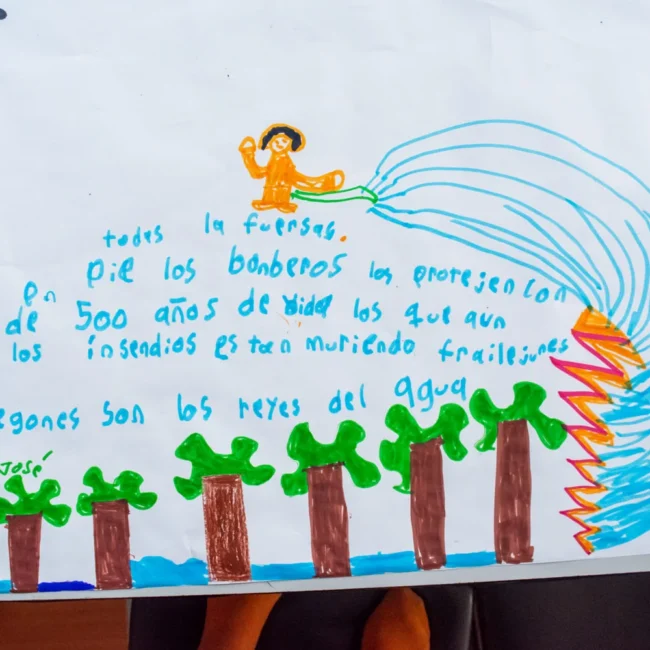 todas la fuersas.
en pie los bonberos los protejen con
de 500 años de vida los que aún
los insendios estan muriendo frailejones
egones son los reyes del agua
José